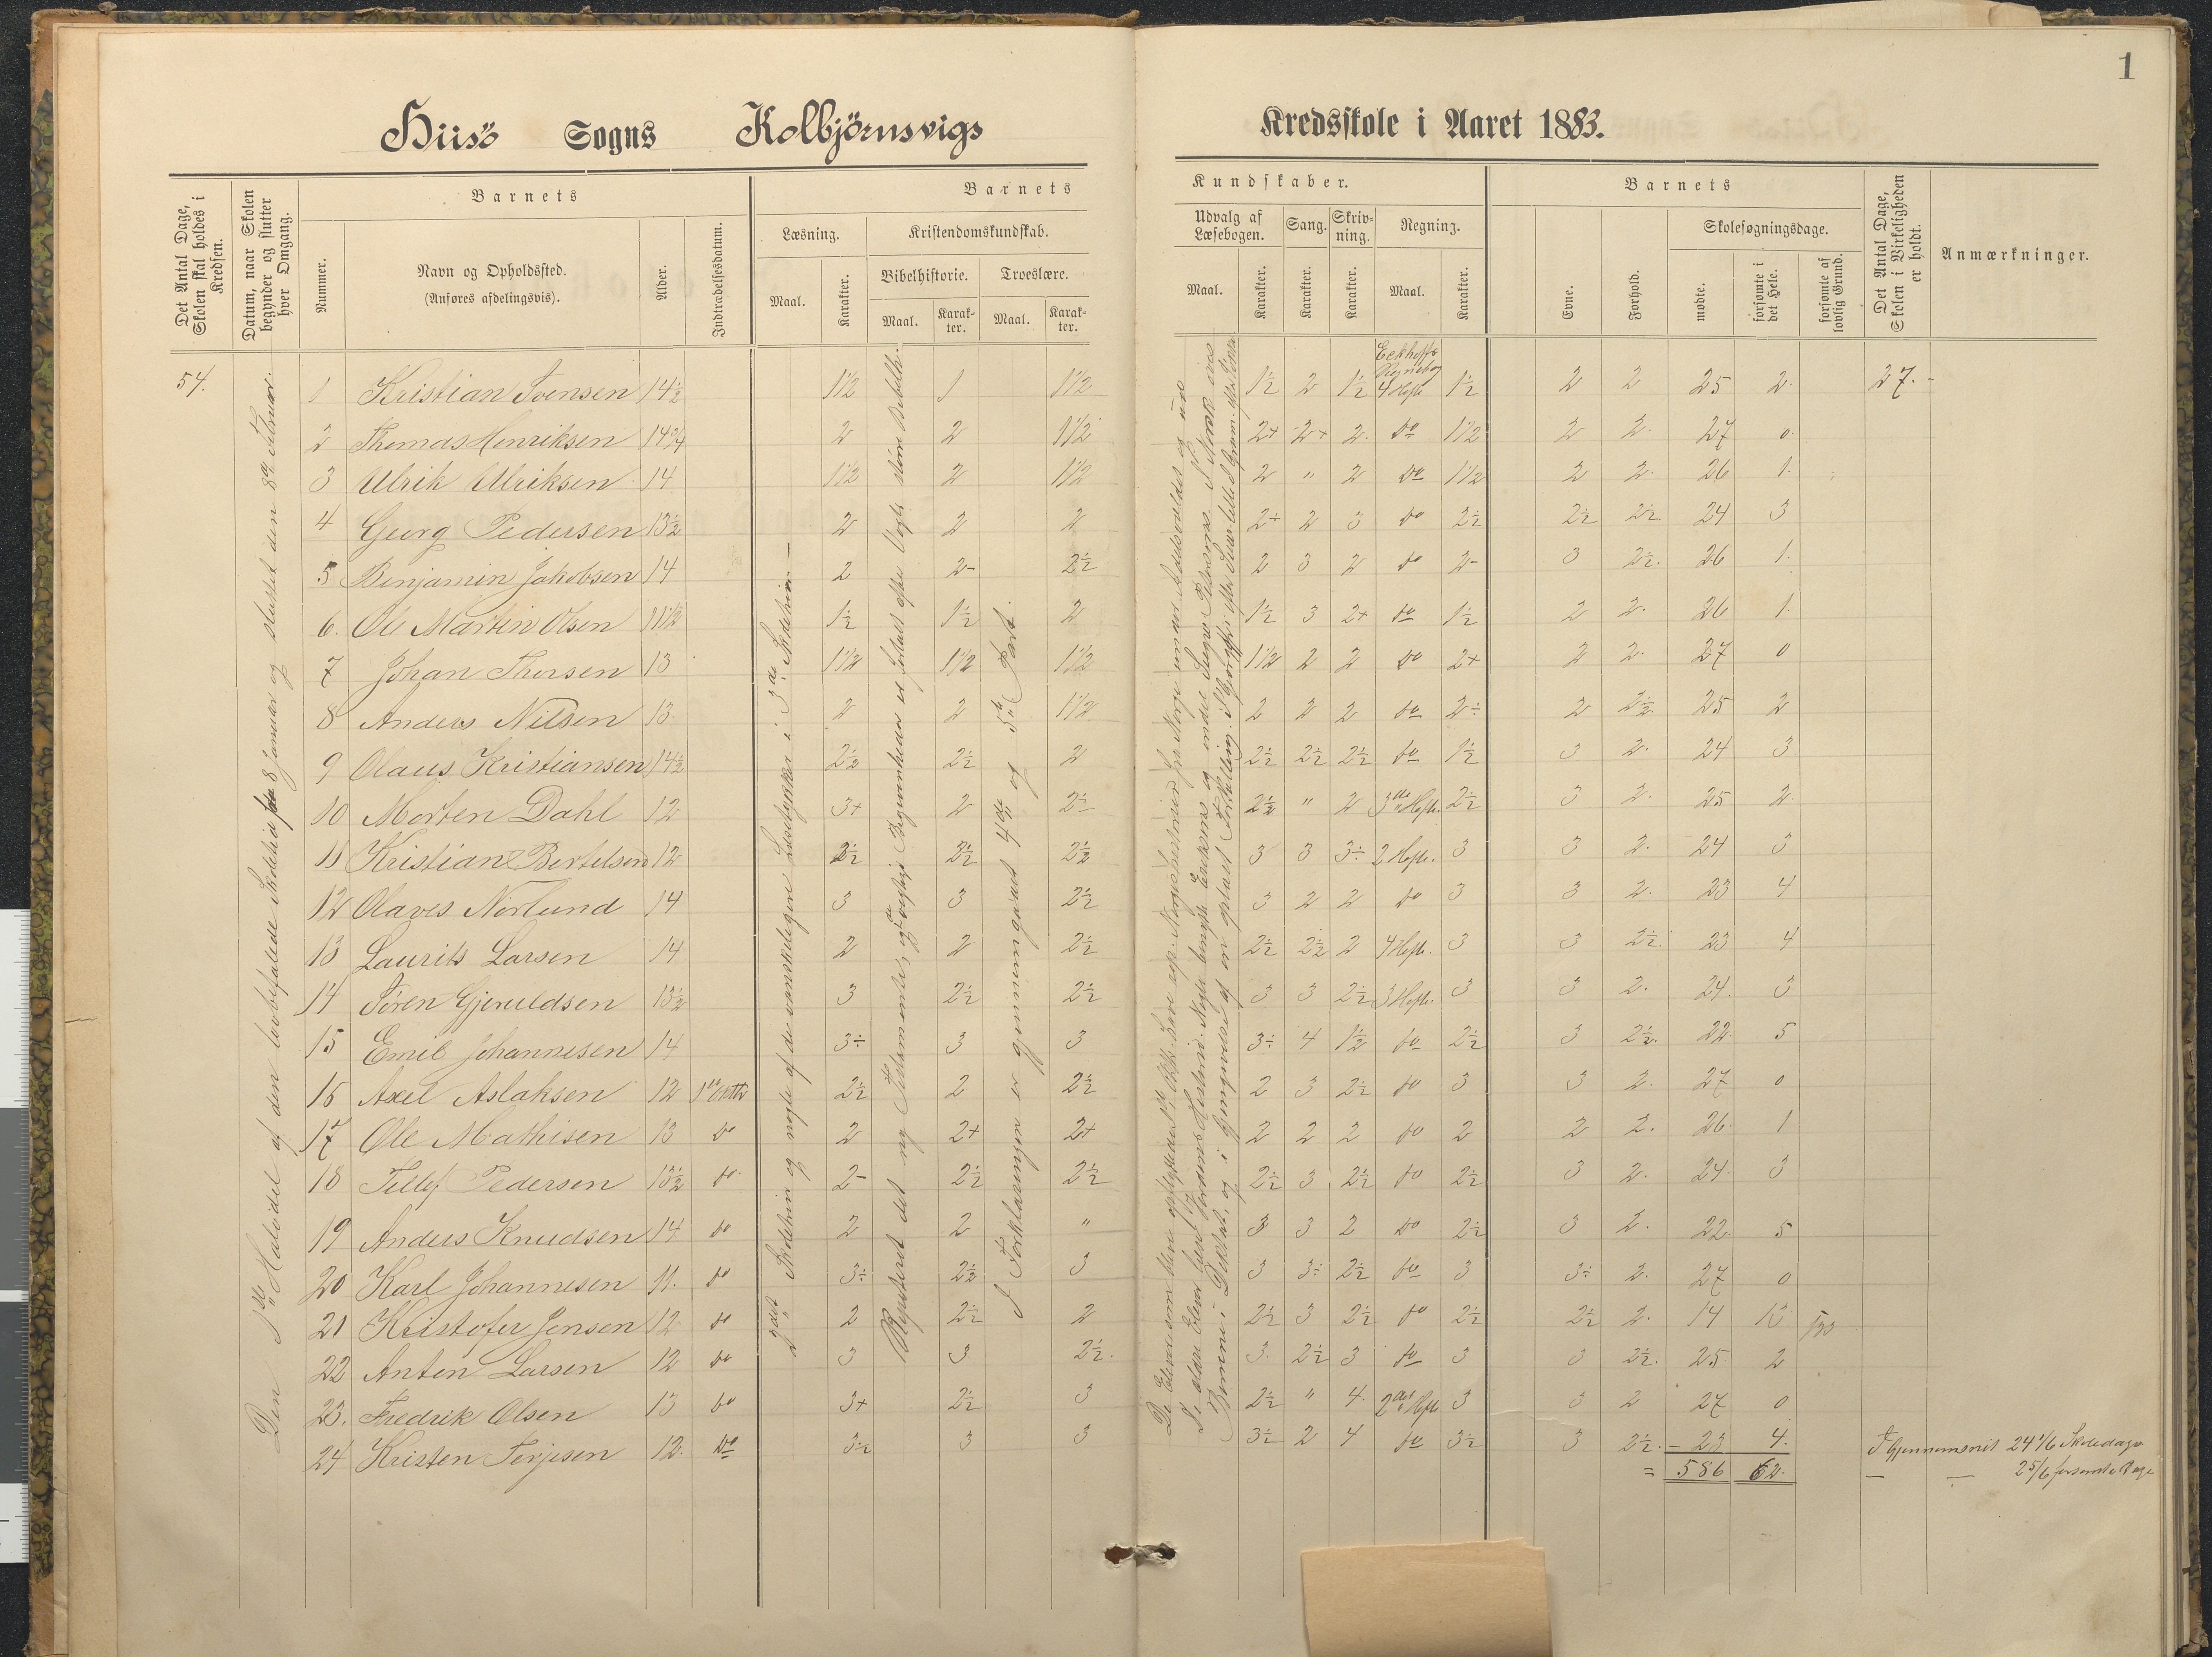 1
Hisö Sogns Kolbjörnsvigs Kredsskole i Aaret 1883.
Det Antal Dage, Skolen skal holdes i Kredsen.
Datum, naar Skolen begynder og slutter hver Omgang.
Barnets
Nummer.
Navn og Opholdssted.
(Anføres afdelingsvis).
Alder.
Indtrædelsesdatum.
Barnets Kundskaber.
Læsning.
Maal.
Karakter.
Kristendomskundskab.
Bibelhistorie.
Maal.
Karakter.
Troeslære.
Maal.
Karakter.
Udvalg af Læsebogen.
Maal.
Karakter.
Sang.
Karakter.
Skrivning.
Karakter.
Regning.
Maal.
Karakter.
Barnets
Evne.
Forhold.
Skolesøgningsdage.
mødte.
forsømte i det Hele.
forsømte af lovlig Grund.
Det Antal Dage, Skolen i Virkeligheden er holdt.
Anmærkninger.
54.
Den 1ste Halvdel af den lovbefalede Skoletid fra 8 januar og sluttet den 8de Februar.
I Forklaringen er gjennemgaaet 4de og 5te Part.
1 Kristian Svensen 14½ 1½ 1 1½ 1½ 2 1½ Eckhoffs Regnebog 4 Hefte 1½ 2 2 25 2 27.
2 Thomas Henriksen 14¾ 2 2 1½ 2+ 2+ 2 do 1½ 2 2 27 0
3 Ulrik Ulriksen 14 1½ 2 1½ 2 " 2 do 1½ 2 2 26 1
4 Georg Pedersen 13½ 2 2 2 2+ 2 3 do 2½ 2½ 2½ 24 3
5 Benjamin Jakobsen 14 2 2- 2½ 2 3 2 do 2- 3 2½ 26 1
6. Ole Martin Olsen 11½ 1½ 1½ 2 1½ 3 2+ do 1½ 2 2 26 1
7 Johan Thorsen 13 1½ 1½ 1½ 1½ 2 2 do 2+ 2 2 27 0
8 Anders Nilsen 13 2 2 1½ 2 2 2 do 2÷ 2 2½ 25 2
9 Olaus Kristiansen 14½ 2½ 2½ 2 2½ 2½ 2½ do 1½ 3 2 24 3
10 Morten Dahl 12 3+ 2 2÷ 2½ " 2 3die Hefte 2½ 3 2 25 2
11 Kristian Bertelsen 12 2½ 2½ 2½ 3 3 3÷ 2 Hefte 3 3 2 24 3
12 Olaves Norlund 14 3 3 2½ 3 2 2 do 3 3 2 23 4
13 Laurits Larsen 14 2 2 2½ 2½ 2½ 2 4 Hefte 3 3 2½ 23 4
14 Søren Gjeruldsen 13½ 3 2½ 2½ 3 3 2½ 3 Hefte 3 3 2 24 3
15 Emil Johannesen 14 3÷ 3 3 3÷ 4 1½ do 2½ 3 2½ 22 5
16 Axel Aslaksen 12 2½ 2 2½ 2 3 2½ do 3 3 2 27 0
17 Ole Mathisen 13 do 2 2+ 2+ 2 2 2 do 2 2 2 26 1
18 Tellef Pedersen 13½ do 2- 2½ 2½ 2½ 3 2½ do 2½ 3 2 24 3
19 Anders Knudsen 14 do 2 2 " 3 3 2 do 2½ 3 2 22 5
20 Karl Johannesen 11. do 3÷ 2½ 3 3 3÷ 2½ do 3 3÷ 2 27 0
21 Kristofer Jensen 12 do 2 2½ 2 2½ 3 2½ do 2½ 2½ 2 14 13
22 Anton Larsen 12 do 3 3 2½ 3 2½ 3 do 3 3 2½ 25 2
23. Fredrik Olsen 13 do 3+ 2½ 3 2½ " 4 2det Hefte 3 3 2 27 0
24 Kristen Terjesen 12. do 3½ 3 3 3½ 2 4 do 3½ 3 2½ - 23 4.
= 586 62.
I Gjennemsnit 24 1/6 Skoledage
— — 2 5/6 forsømte Dage